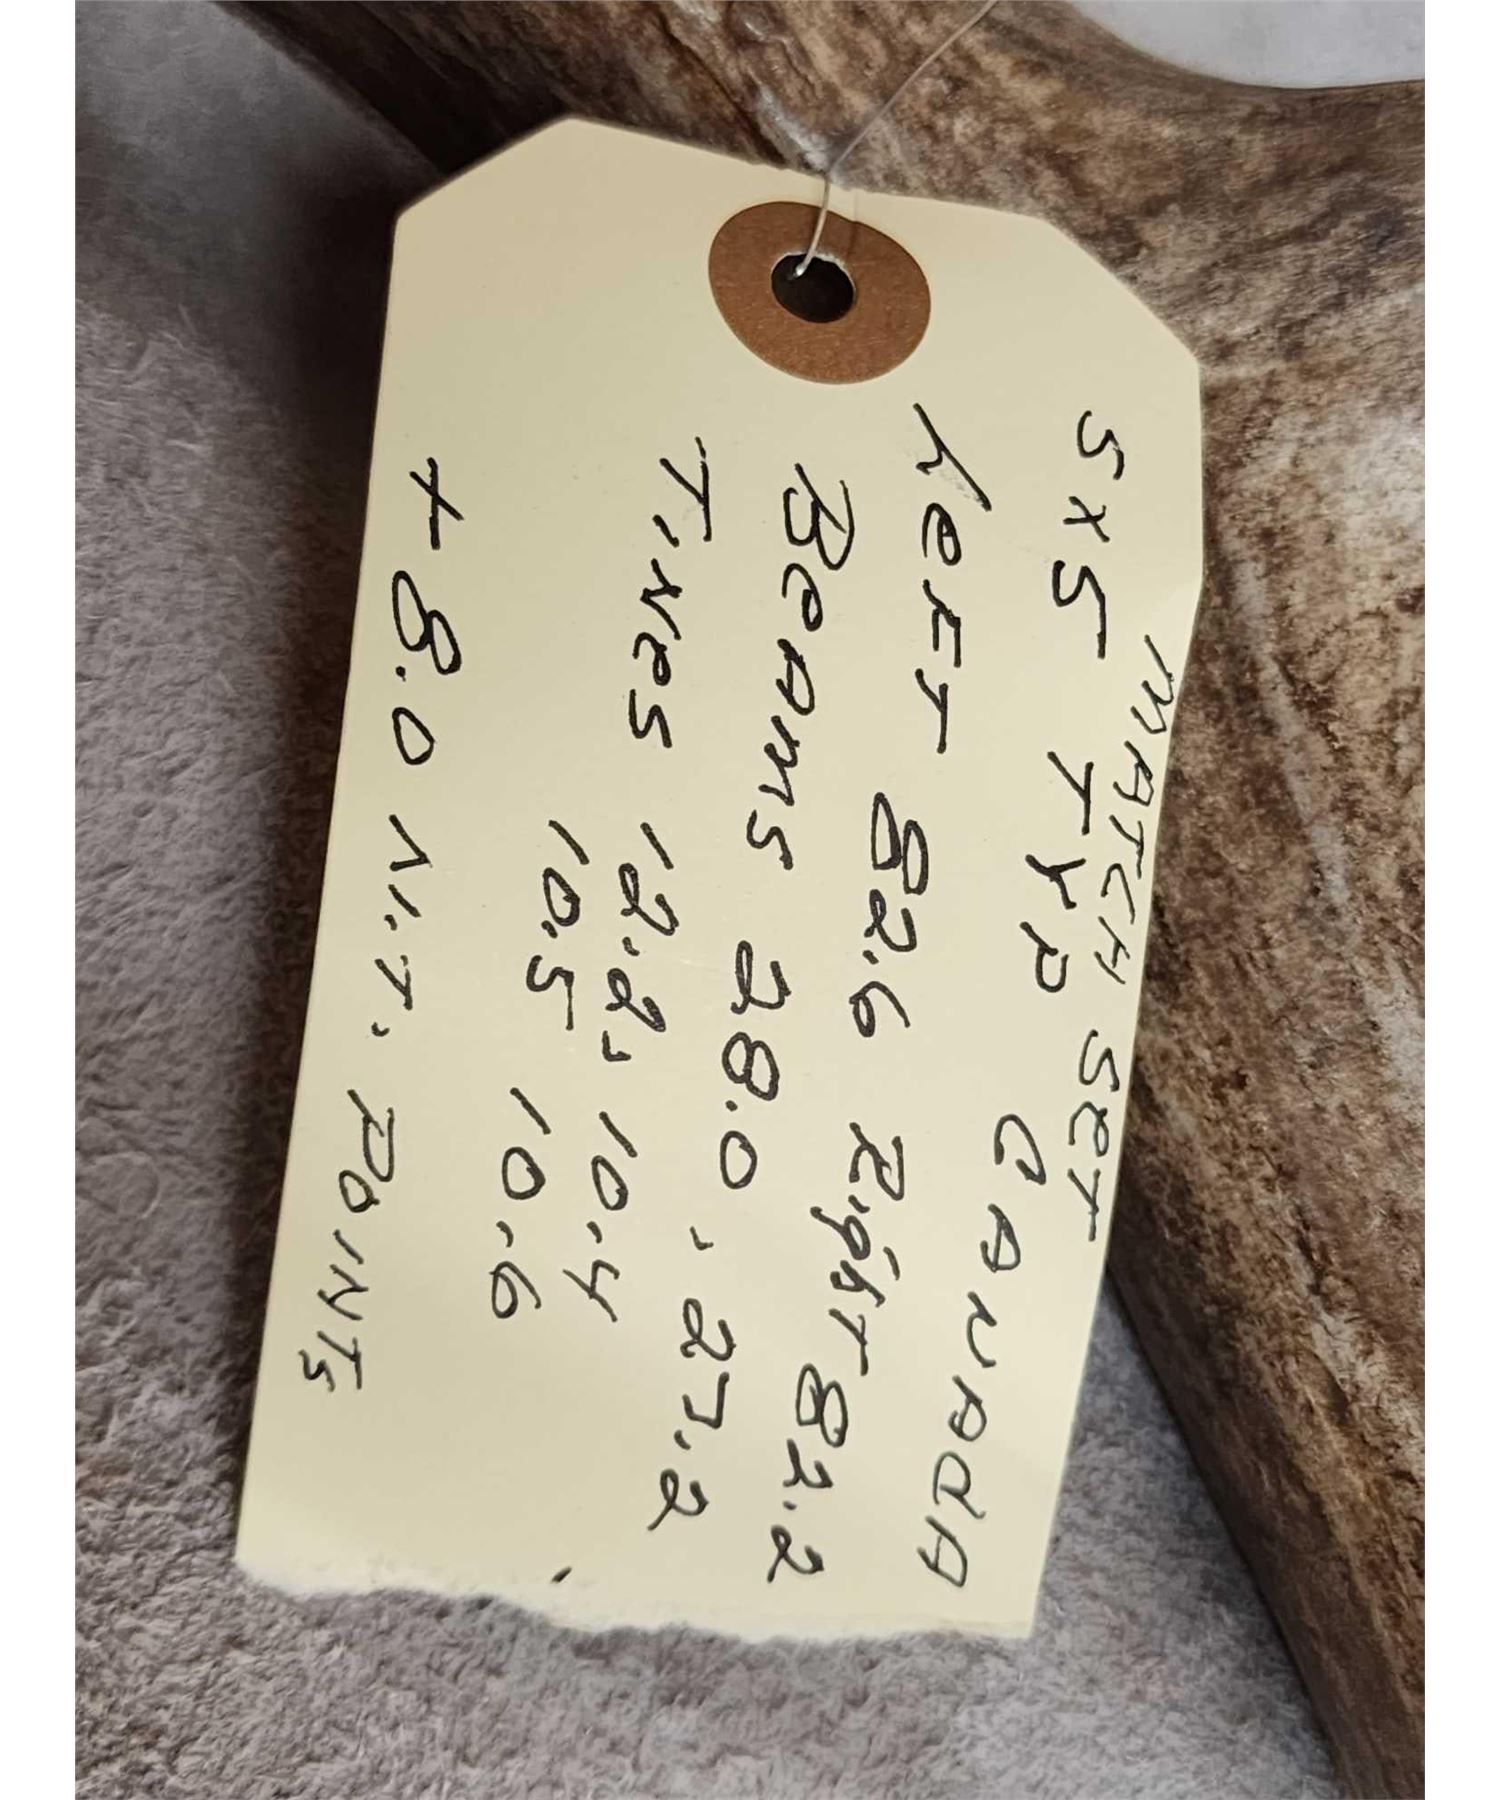 MATCH SET
5x5 TYP CANADA
LeFT 82.6 RighT 82.2
BeAms 28.0, 27.2
TiNes 12.2, 10.4
10.5 10.6
+ 8.0 N.T. POINTS